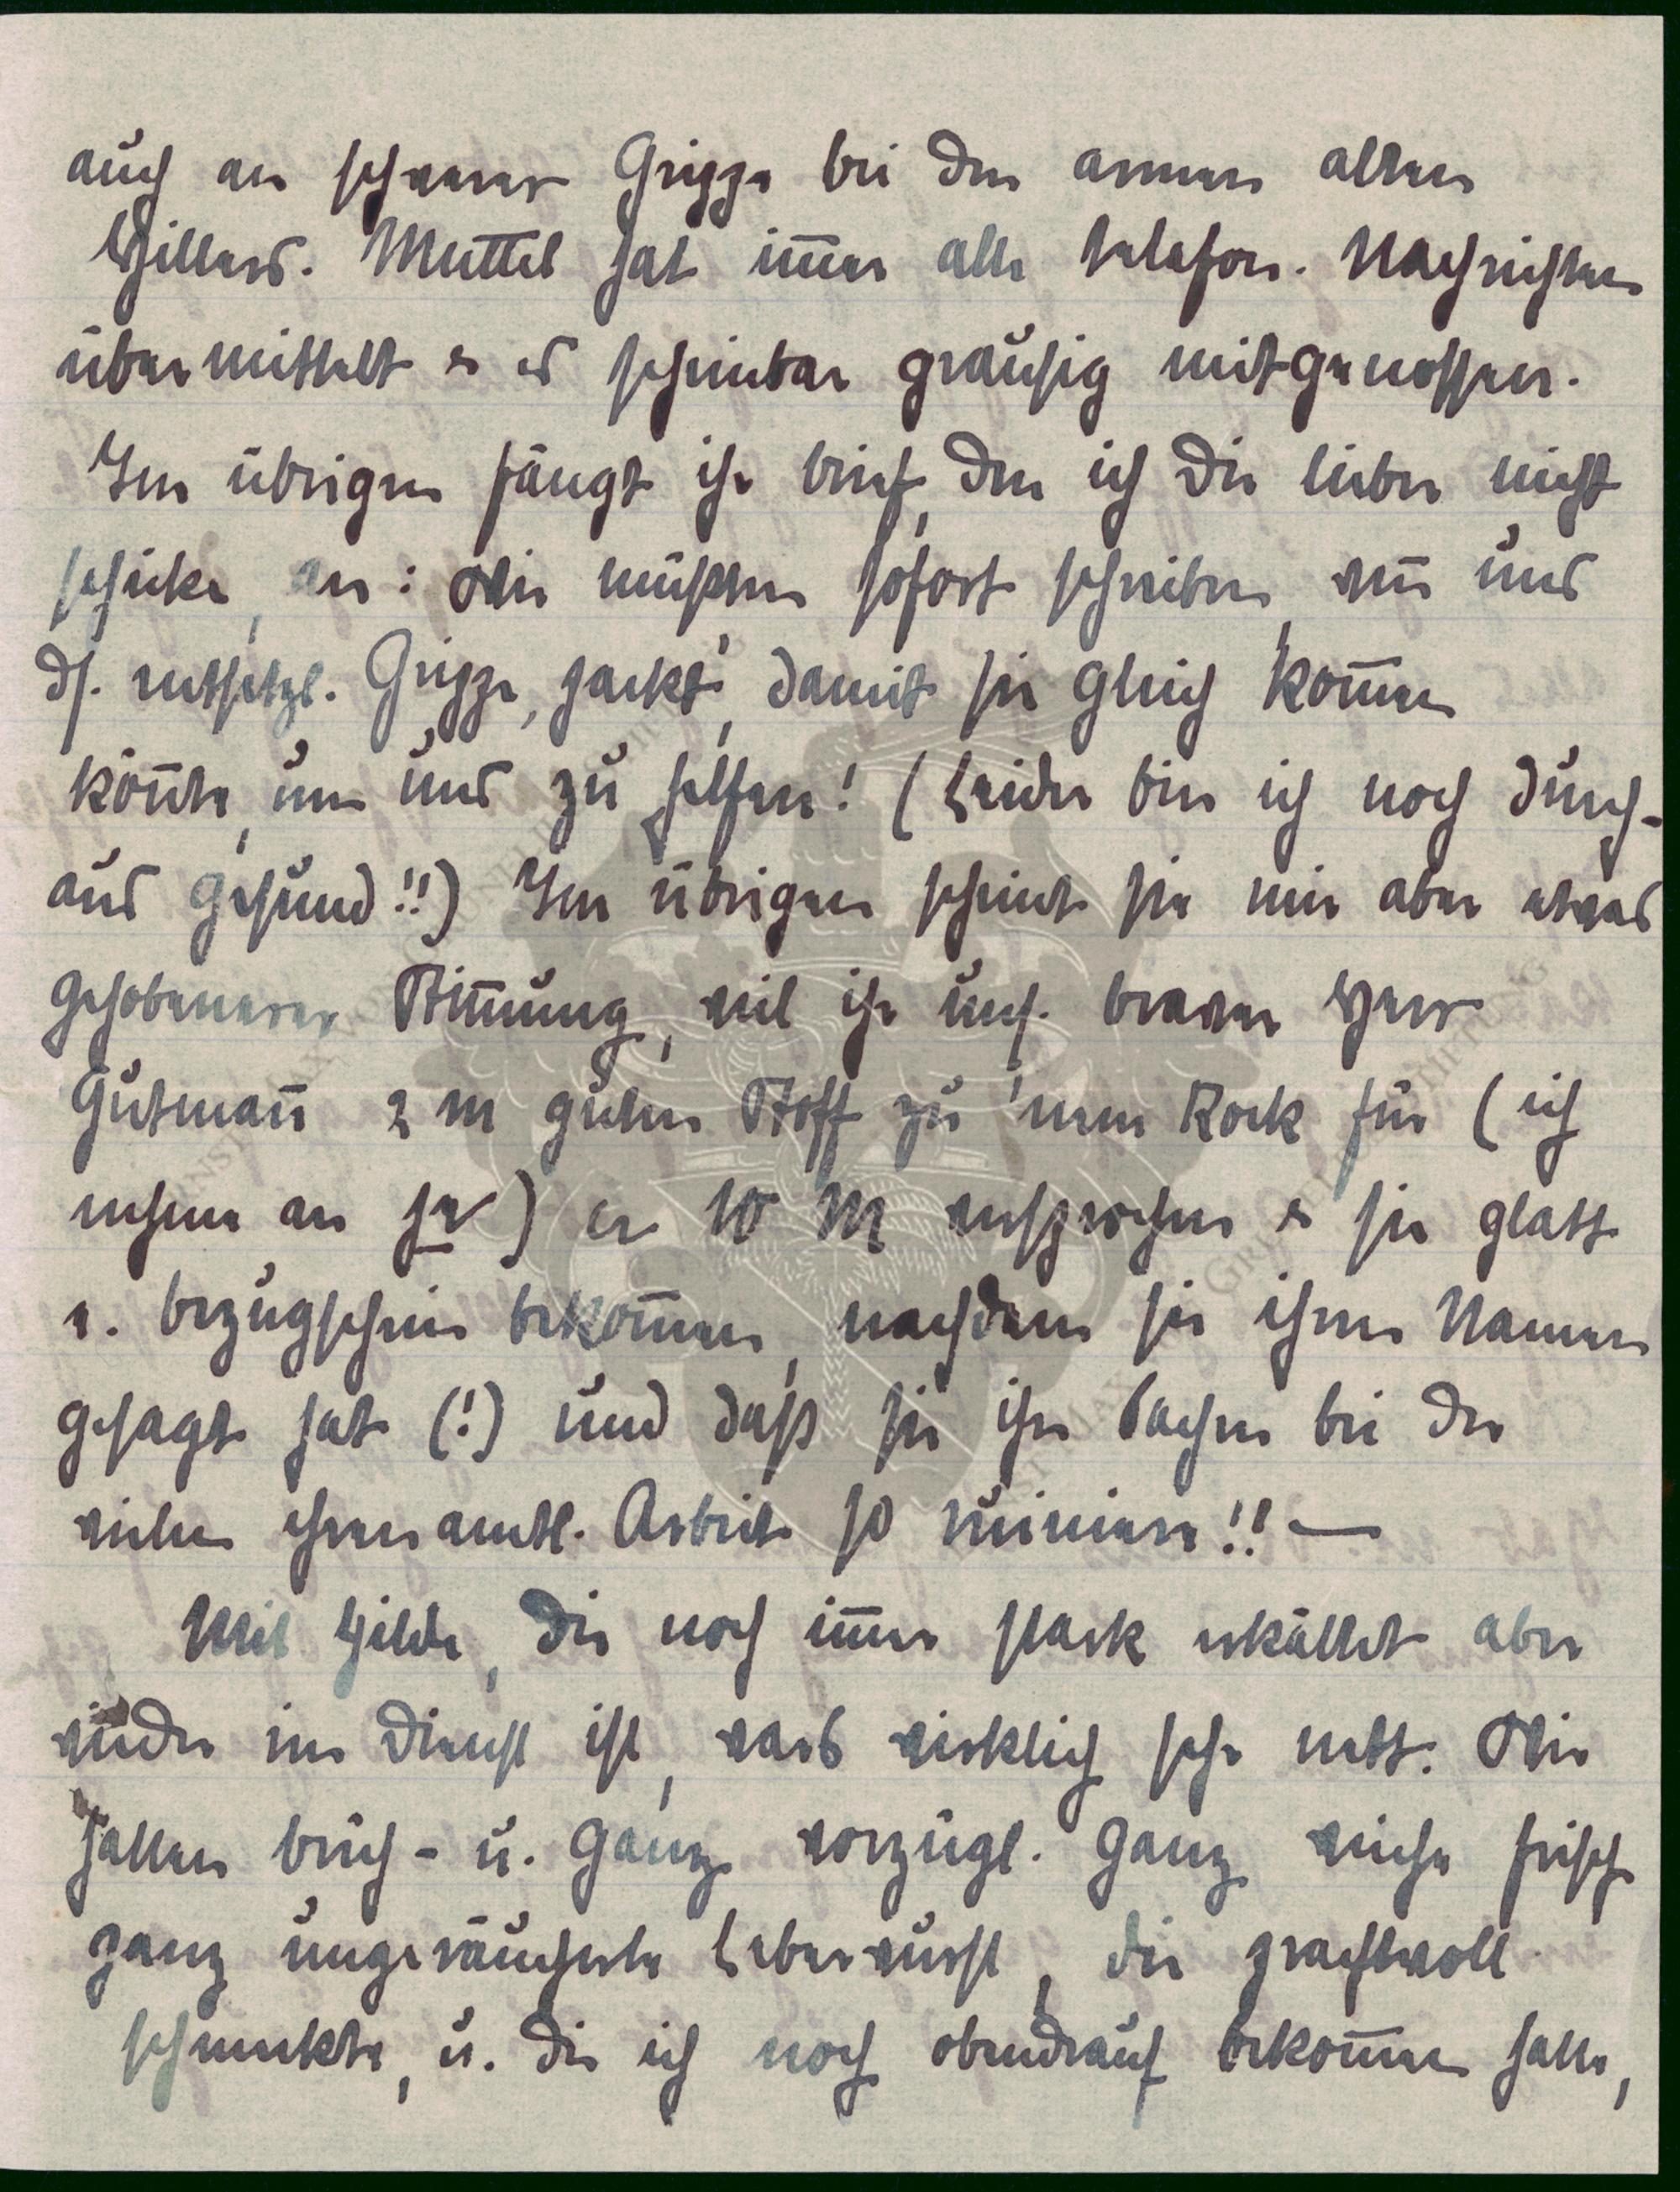 auch an schwerer Grippe bei den armen alten
Hillers. Muttel hat im̄er alle telefon. Nachrichten
übermittelt & es scheinbar grausig mitgenossen.
Im übrigen fängt ihr brief, den ich Dir lieber nicht
schicke, an: Wir müssten sofort schreiben, wen̄ uns
ds. entsetzl. Grippe, packt, damit sie gleich kom̄en
kön̄te, um uns zu helfen! (Leider bin ich noch durch-
aus gesund!!) Im übrigen scheint sie mir aber etwas
gehobenerer Stim̄ung, weil ihr uns. braver Herr
Gutman̄ 2 m guten Stoff zu 'nem Rock für (ich
nehme an pr) 10 M versprochen & sie glatt
e. bezugschein bekom̄en, nachdem sie ihren Namen
gesagt hat (!) und dass sie ihre Sachen bei der
vielen ehrenamtl. Arbeit so ruiniere!! —
Mit Hilde, die noch im̄er stark erkältet aber
wieder im Dienst ist, war's wirklich sehr nett. Wir
hatten - u. ganz vorzügl. ganz weiche frische
ganz ungeräucherte Leberwurst, die prachtvoll
schmeckte, u. die ich noch obendrauf bekom̄en hatte,